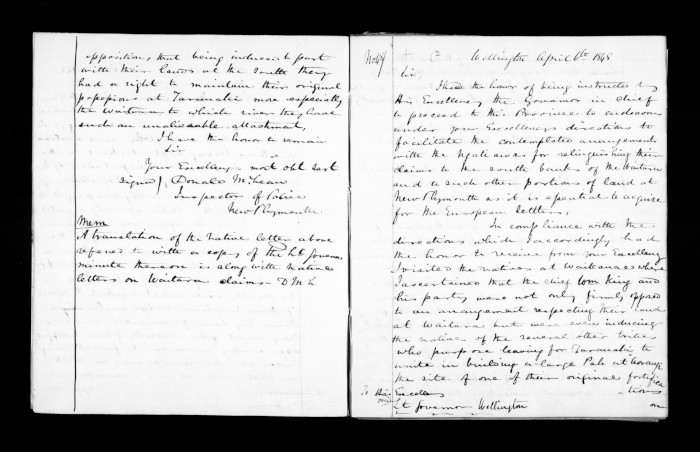 opposition, that being induced to part
with their lands at the south they
had a right to maintain their original
possessions at Taranaki more especially
the Waitara to which river they have
such an unalienable attachment,
I have the honor to remain
Sir
Your Excellency's most obt Sert
Signed/ Donald McLean
Inspector of Police
New Plymouth
Mem
A translation of the native letter above
refered to with a copy of the Lt Govenors
minute thereon is along with Natives
letters on Waitara claims - D McL
Wellington April 6th 1848
Sir,
I had the honor of being instructed by
His Excellency the Governor in Chief
to proceed to this Province to endeavour
under your Excellency's directions to
facilitate the contemplated arrangements
with the Ngatiawas for relinquishing their
claims to the south banks of the Waitara
and to such other portions of land at
New Plymouth as it is essential to acquire
for the European settlers,
In compliance with the
directions which I accordingly had
the honor to receive from your Excellency
I visited the natives at Waikanae where
I ascertained that the chief Wm King and
his party were not only firmly opposed
to an arrangement respecting their land
at Waitara but were even inducing
the natives of the several other tribes
who purpose leaving for Taranaki to
unite in building a large Pah at
the site of one of their original fortifica
tions
To His Excellency
Lt Governor Wellington
on